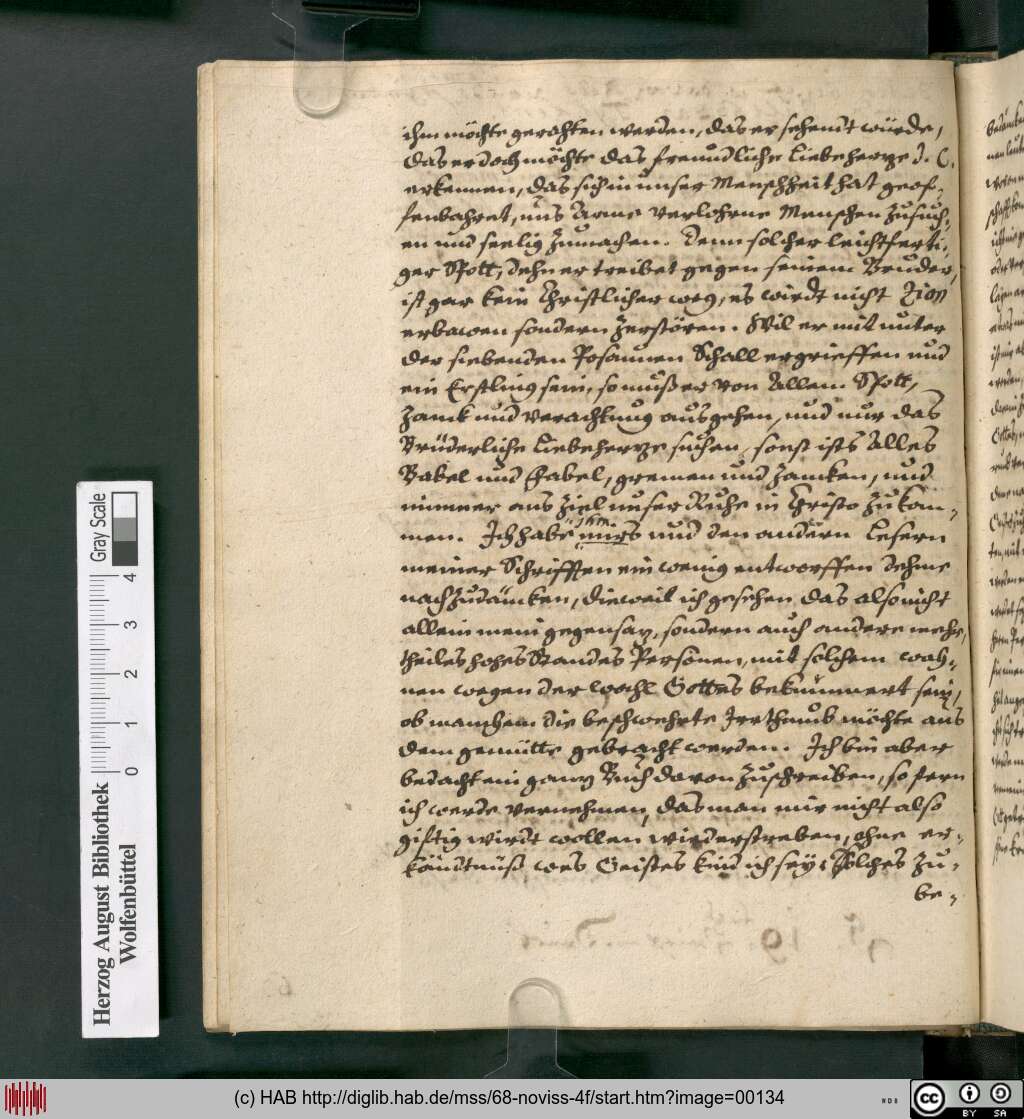 ihm möchte gerahten werden, das er sehent würde,
das er doch möchte das freundliche Liebehertze J. C.
erkennen, das sich in unser Menschheit hat geof-
fenbahret, uns Arme verlohrne Menschen zusuch-
en und seelig zumachen. Denn solcher leichtferti-
ger Spott, dehn er treibet gegen seinem Bruder,
ist gar kein Christlicher weg, es wirdt nicht Zion
erbawen sondern zerstören. Wil er mit unter
der siebenden Posaunen Schall ergrieffen und
ein Erstling sein, so muß er von Allem Spott,
Zanck und verachtung ausgehen, und nur das
Brüderliche Liebehertze suchen, sonst ists Alles
Babel und Fabel, gremen und zancken, und
nimmer ans Ziel unser Ruhe in Christo zukom-
men. Ich habe ihm mirs und den andern Lesern
meiner Schrifften ein wenig entworffen dehme
nachzudäncken, dieweil ich gesehen das also nicht
allein mein gegensatz, sondern auch andere mehr,
theiles hohes Standes Personen, mit solchem wah-
nen wegen der wahl Gottes bekümmert sein,
ob manchem die beschwehrte Irrthumb möchte aus
dem gemütte gebracht werden. Ich bin aber
bedacht ein gantz Buch davon zuschreiben, so fern
ich werde vernehmen, das man mir nicht also
giftig wirdt wollen wiederstreben, ohne er-
käntnüß wes Geistes kind ich sey: Solches zu-
be-
Herzog August Bibliothek
Wolfenbüttel
0 1 2 3 4
Gray Scale
(c) HAB http://diglib.hab.de/mss/68-noviss-4f/start.htm?image=00134
WDB
CC BY SA